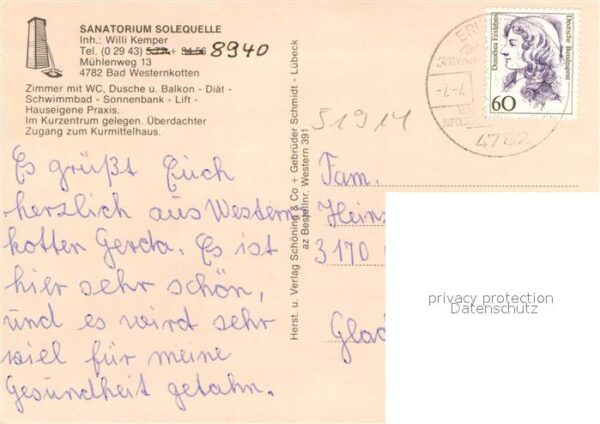 SANATORIUM SOLEQUELLE
Inh.: Willi Kemper
Tel. (0 29 43) 5 77 + 84 56 8940
Mühlenweg 13
4782 Bad Westernkotten
Zimmer mit WC, Dusche u. Balkon - Diät -
Schwimmbad - Sonnenbank - Lift -
Hauseigene Praxis.
Im Kurzentrum gelegen. Überdachter
Zugang zum Kurmittelhaus.
Es grüßt Euch
herzlich aus Western
kotten Gerda. Es ist
hier sehr schön,
und es wird sehr
viel für meine
Gesundheit getahn.
Herst. u. Verlag Schöning & Co + Gebrüder Schmidt - Lübeck
az Bestellnr. Western 391
4782
Dorothea Erxleben
Deutsche Bundespost
60
51914
Fam.
Heinz
3170
Glad
privacy protection
Datenschutz